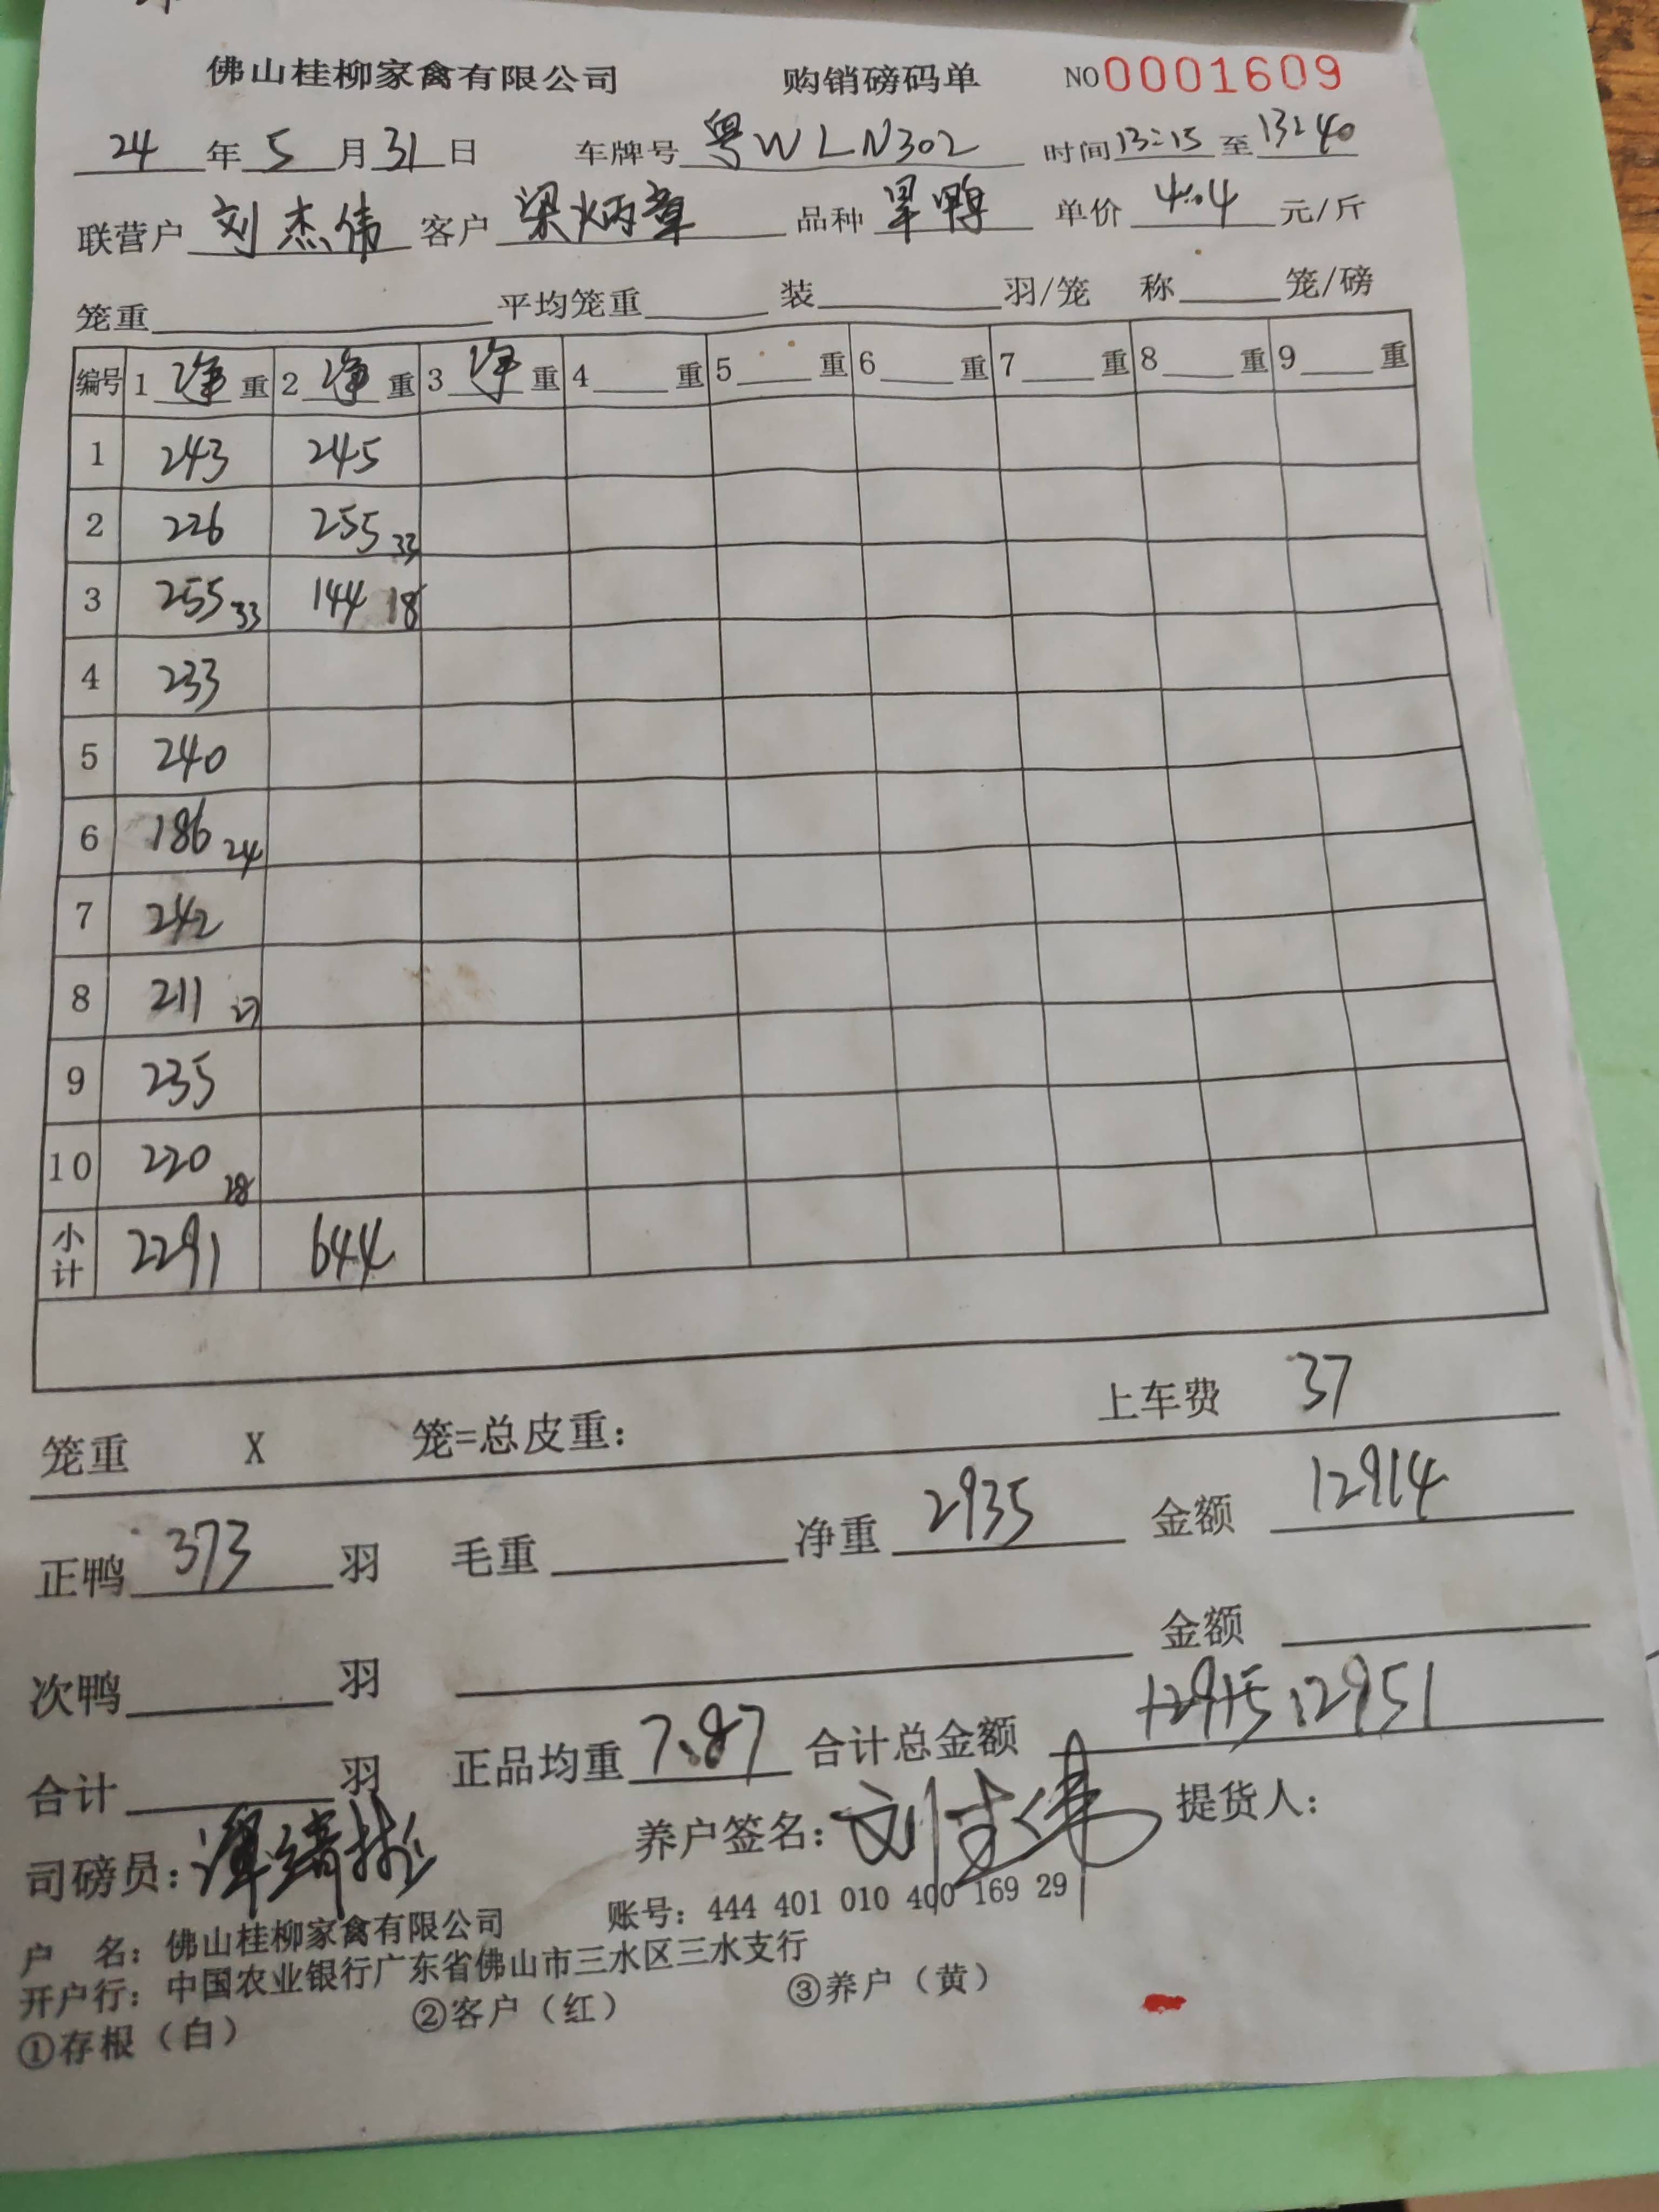 佛山桂柳家禽有限公司 购销磅码单 NO 0001609
24 年 5 月 31 日 车牌号 粤WLN302 时间 13:15 至 13:40
联营户 刘杰伟 客户 梁炳章 品种 旱鸭 单价 4.4 元/斤
笼重 平均笼重 装 羽/笼 称 笼/磅
编号 1 净 重 2 净 重 3 净 重 4 重 5 重 6 重 7 重 8 重 9 重
1 243 245
2 226 255 33
3 255 33 144 18
4 233
5 240
6 186 24
7 242
8 211 27
9 235
10 220 28
小计 2291 644
笼重 X 笼=总皮重: 上车费 37
正鸭 373 羽 毛重 净重 2935 金额 12914
次鸭 羽 金额
合计 羽 正品均重 7.87 合计总金额 12915 12951
司磅员: 养户签名: 刘杰伟 提货人:
户 名: 佛山桂柳家禽有限公司 账号: 444 401 010 400 169 29
开户行: 中国农业银行广东省佛山市三水区三水支行
①存根（白） ②客户（红） ③养户（黄）